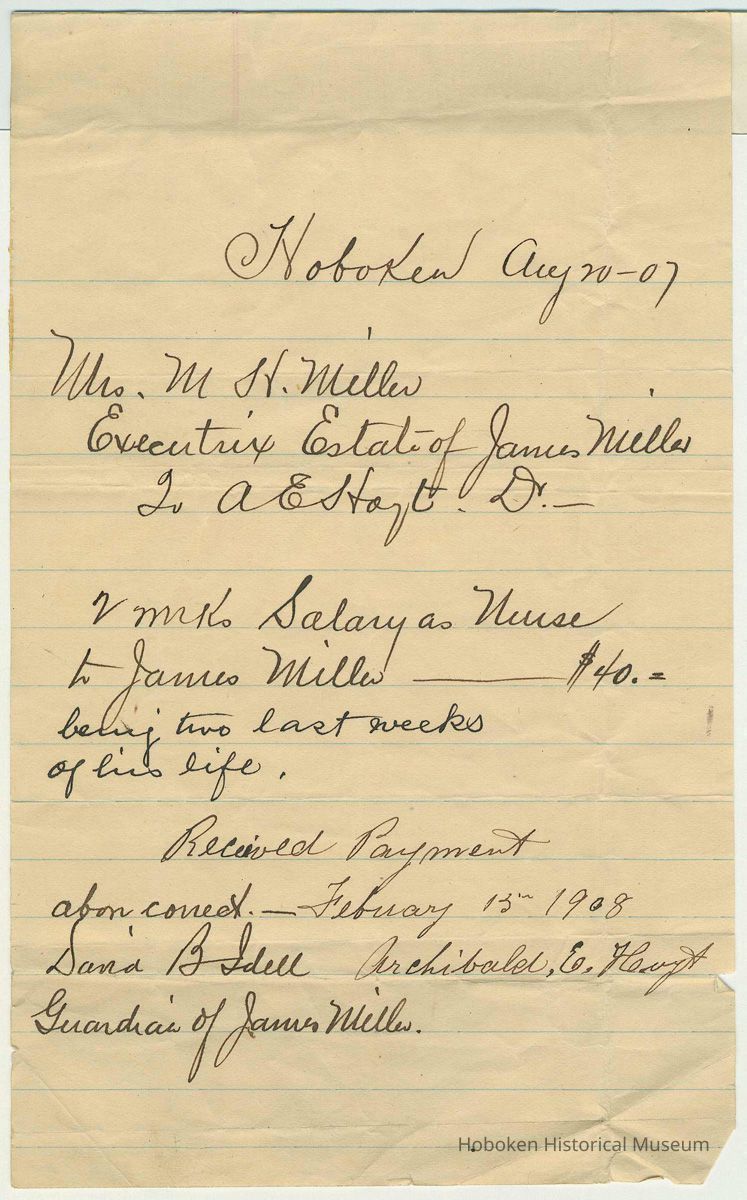 Hoboken Aug 20-07
Mrs. M H. Miller
Executrix Estate of James Miller
To A E Hoyt. Dr.—
2 weeks Salary as Nurse
to James Miller —— $40.=
being two last weeks
of his life.
Received Payment
above correct. — Febuary 15th 1908
David B Idell Archibald. E. Hoyt
Guardian of James Miller.
Hoboken Historical Museum